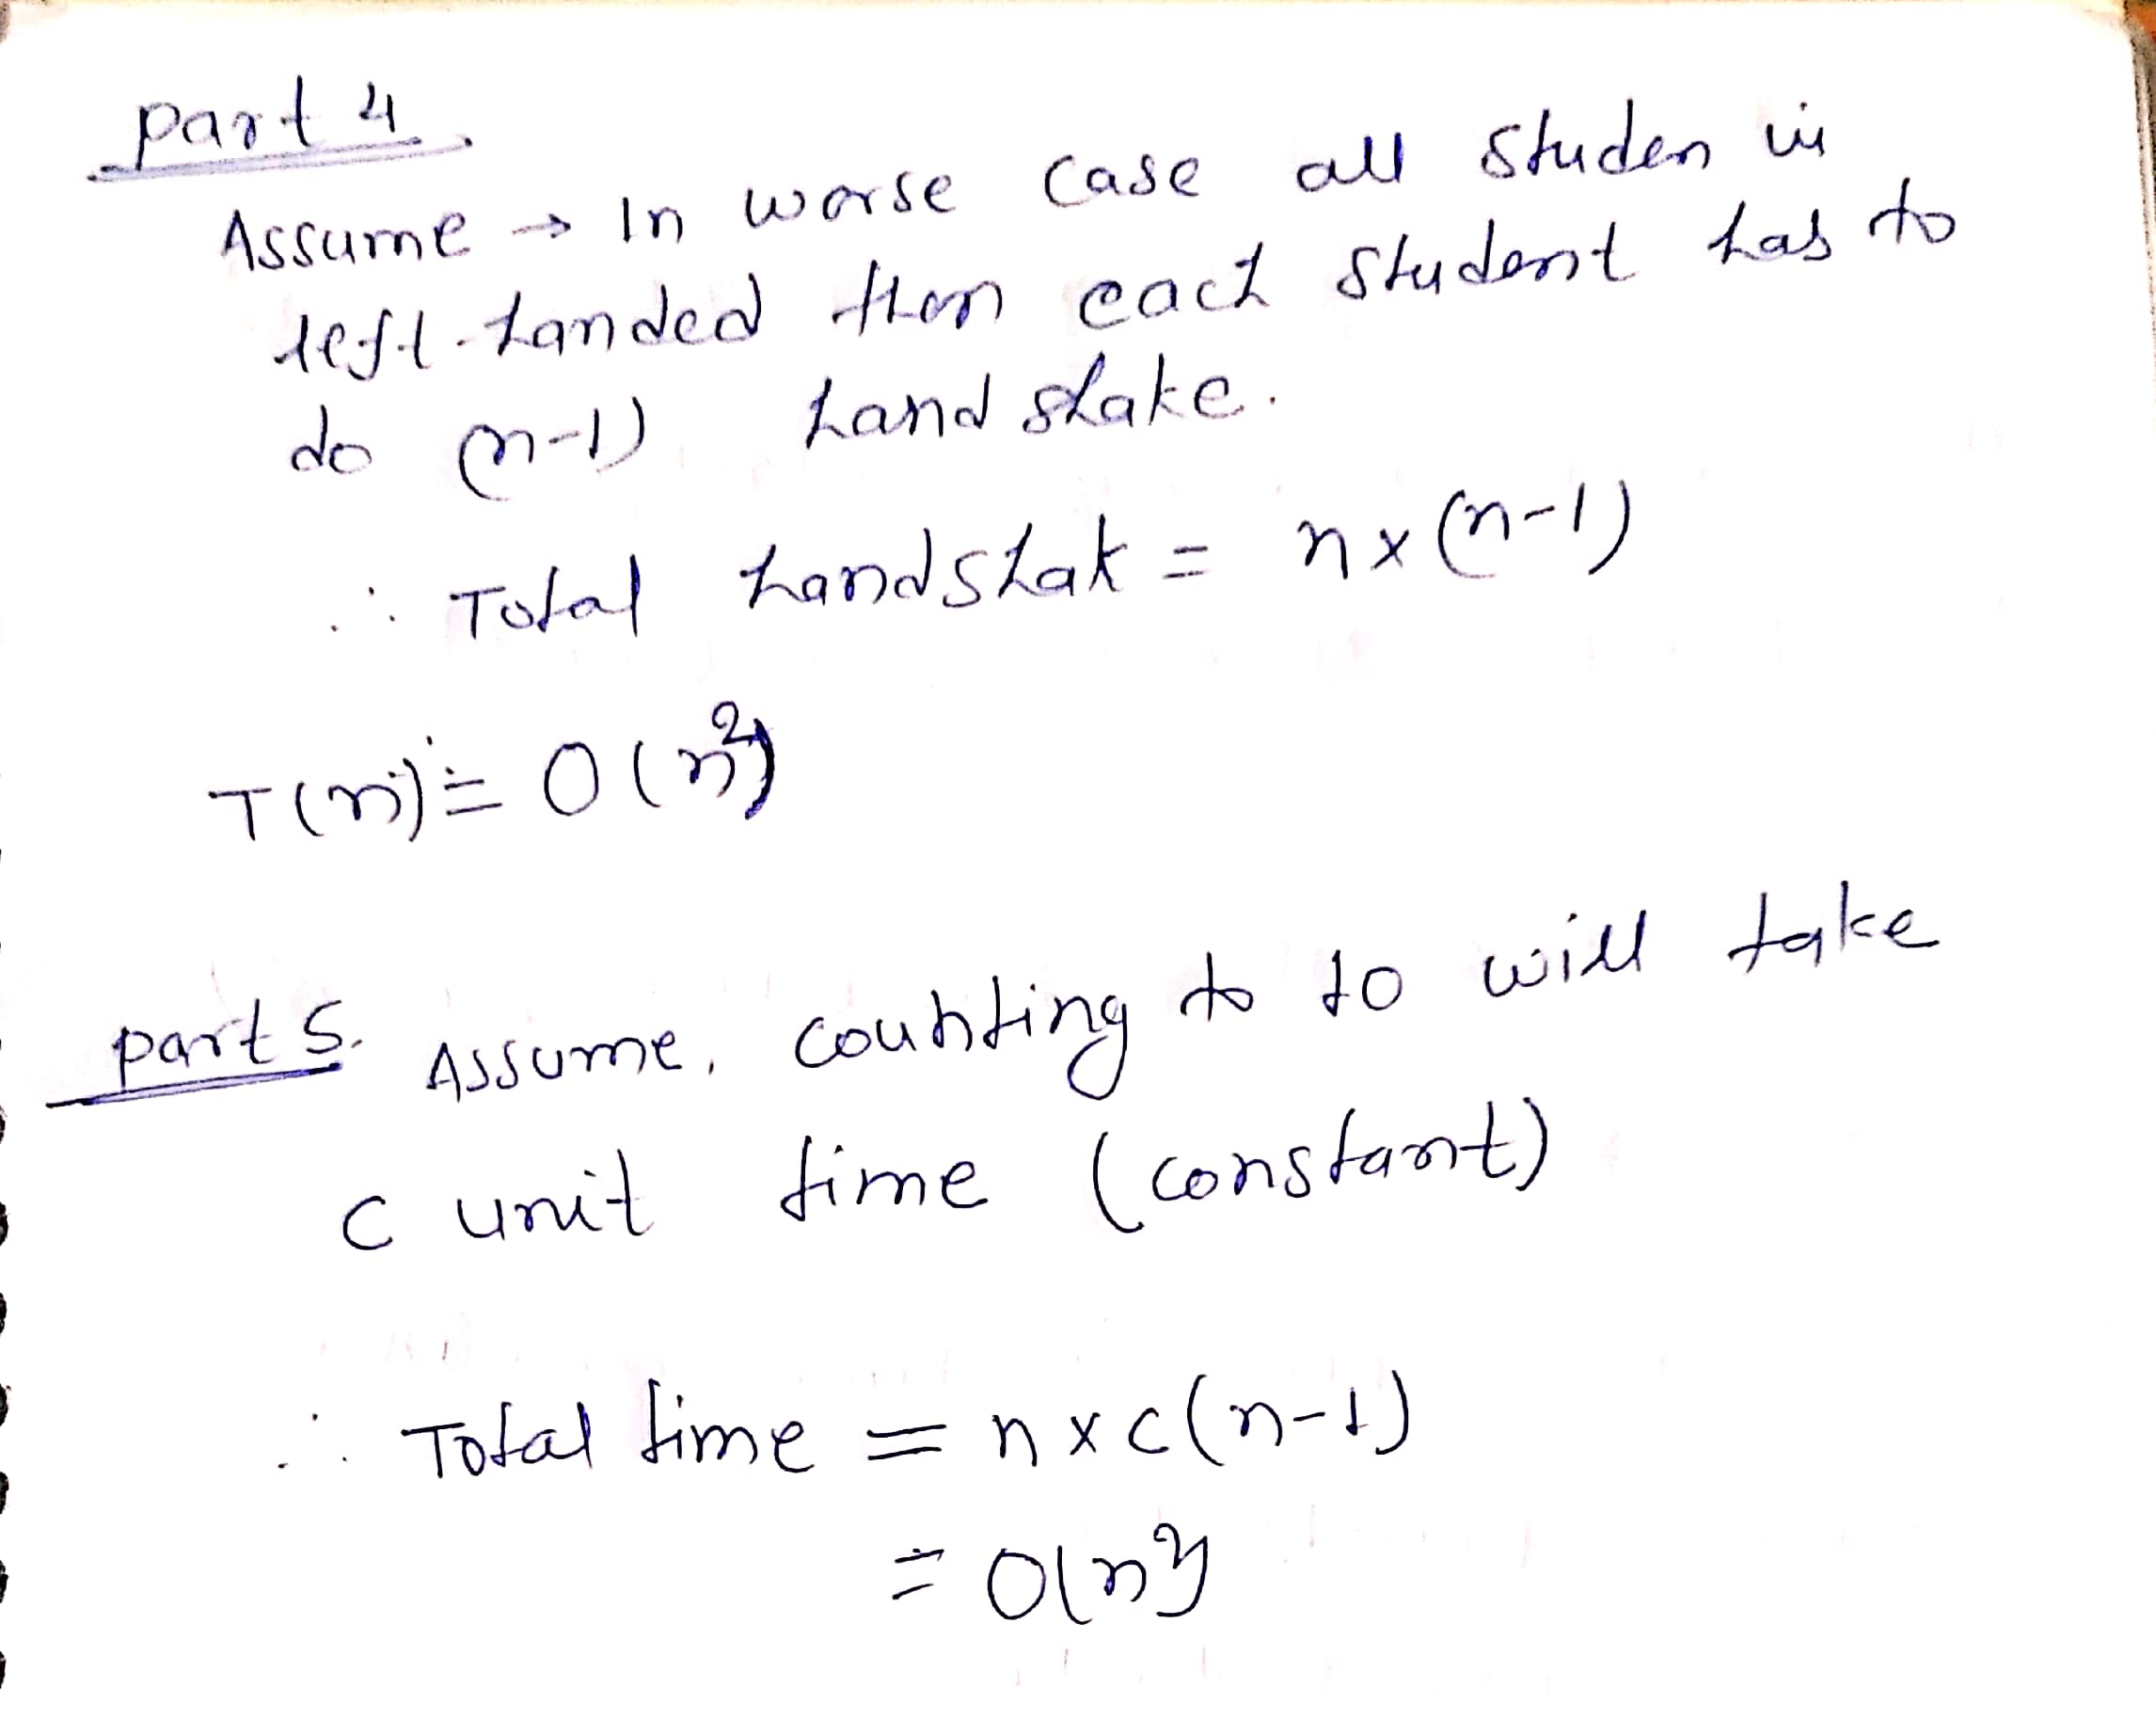 part 4.
Assume → In worse case all studen is
left-handed then each student has to
do (n-1) handshake.
∴ Total handshak = n×(n-1)
T(n) = O(n²)
part 5. Assume, counting to 10 will take
c unit time (constant)
∴ Total time = n×c(n-1)
= O(n²)